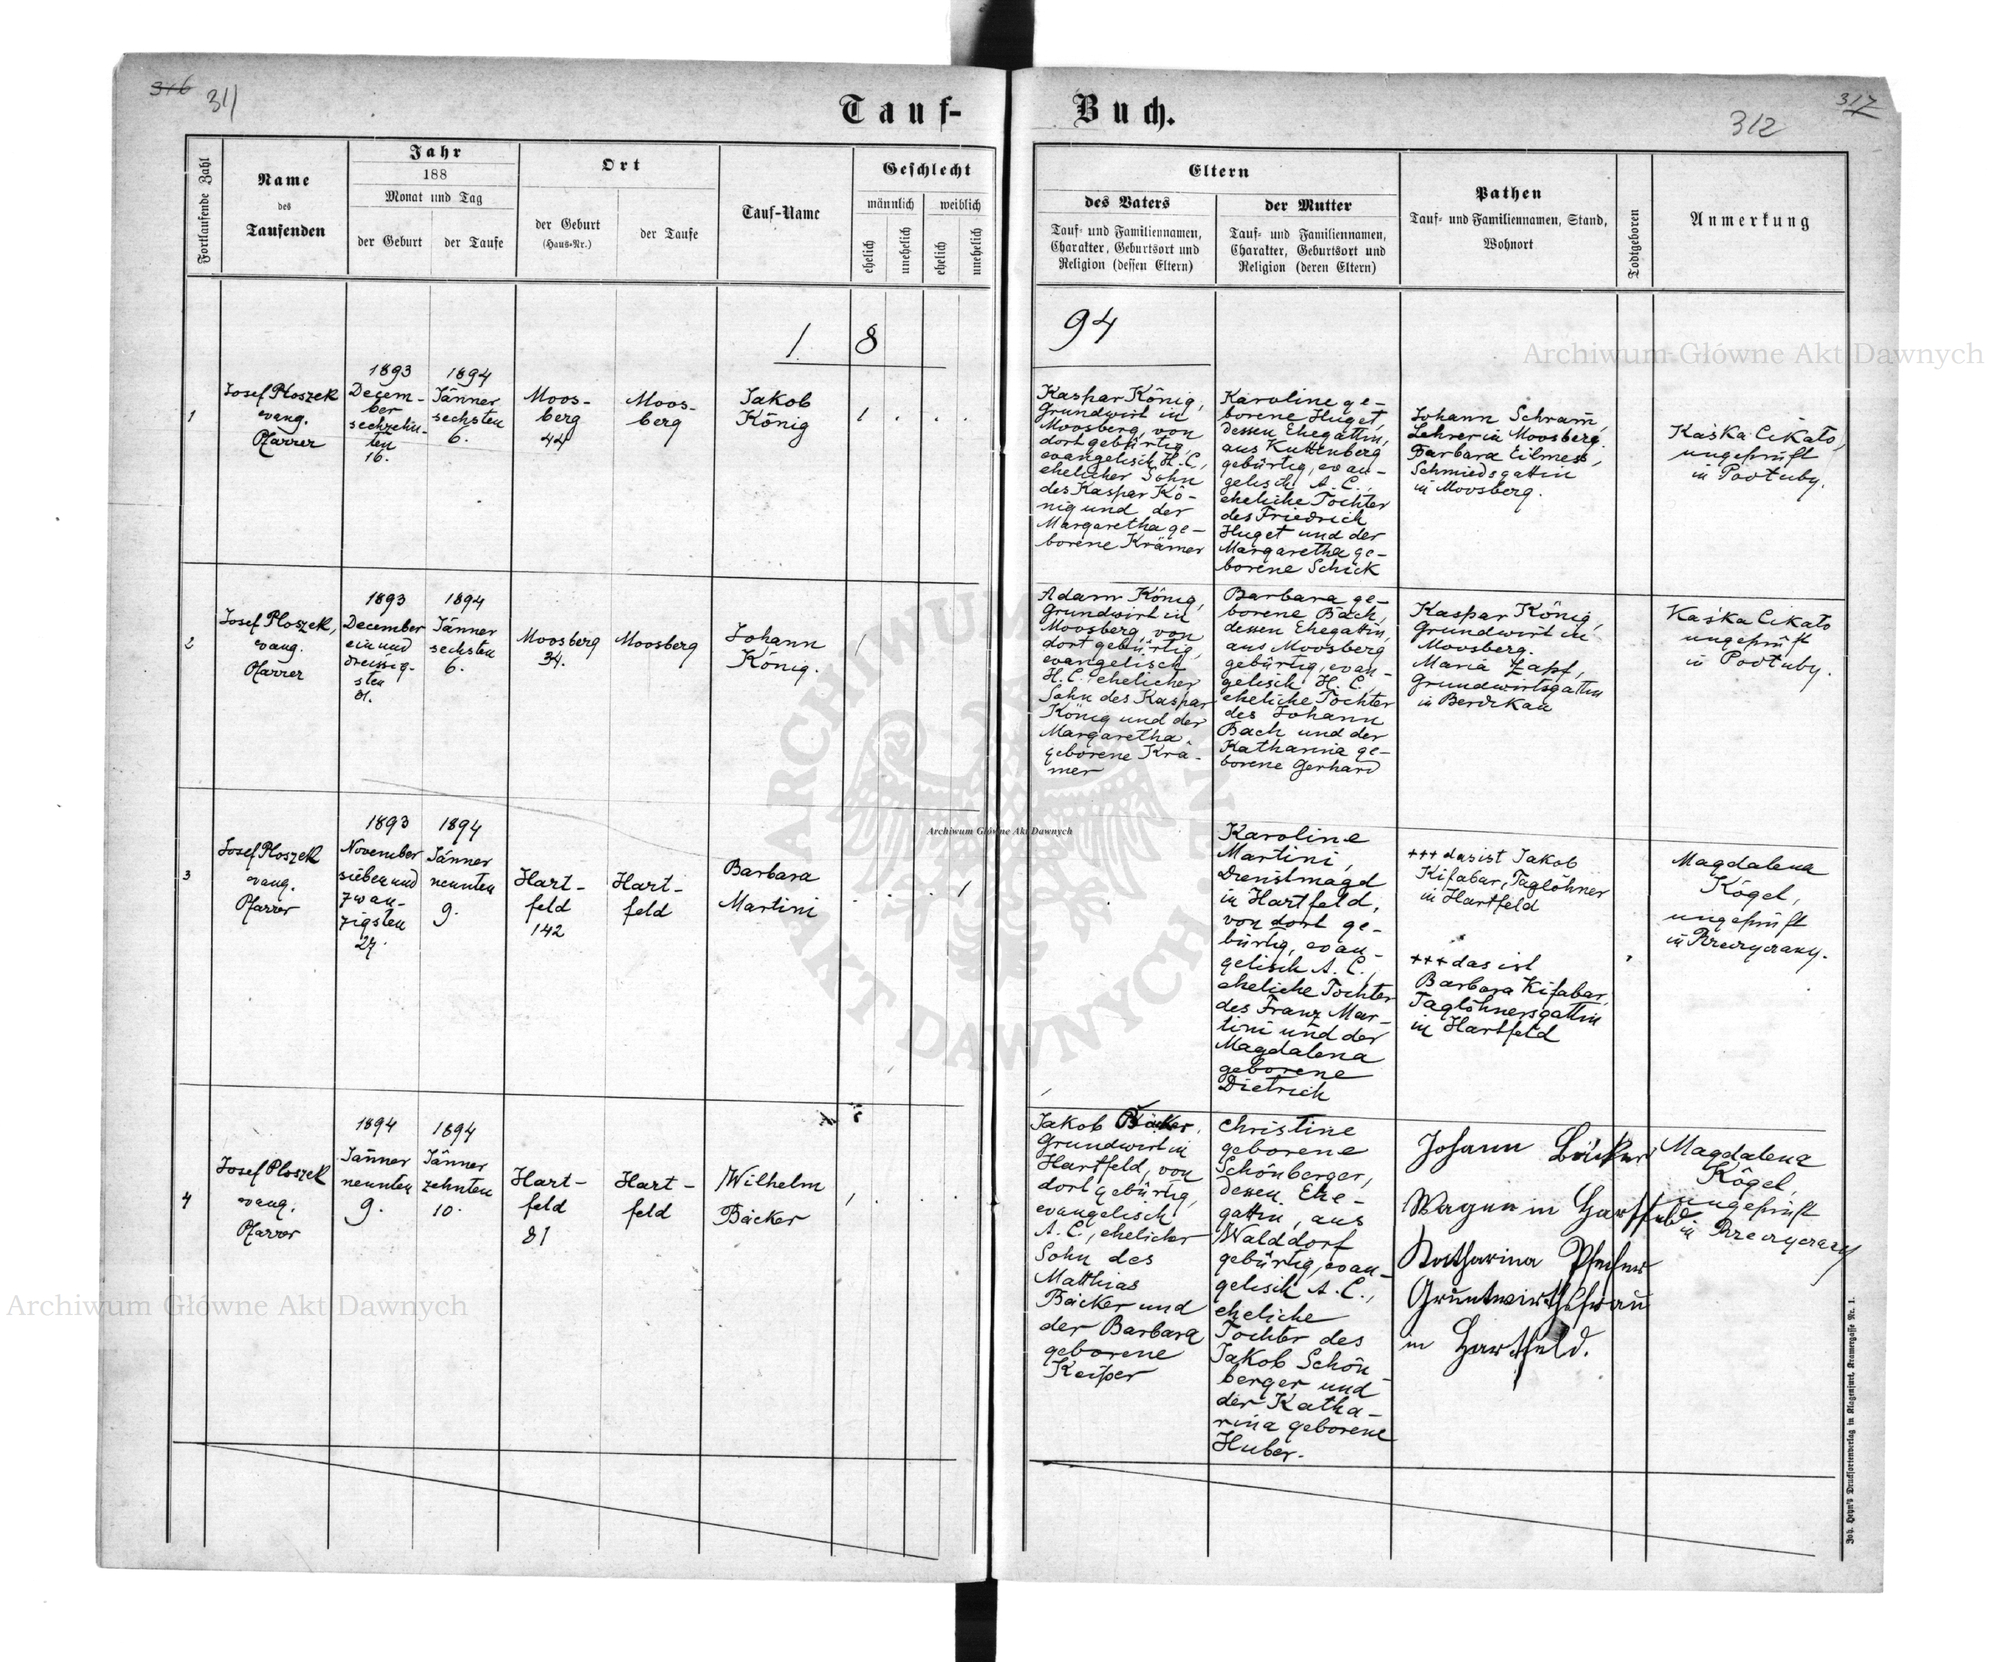 316
311
Tauf-
Buch.
312
317
Fortlaufende Zahl
Name
des
Taufenden
Jahr
188
Monat und Tag
der Geburt
der Taufe
Ort
der Geburt
(Haus-Nr.)
der Taufe
Tauf-Name
Geschlecht
männlich
weiblich
ehelich
unehelich
ehelich
unehelich
Eltern
des Vaters
Tauf- und Familiennamen,
Charakter, Geburtsort und
Religion (dessen Eltern)
der Mutter
Tauf- und Familiennamen,
Charakter, Geburtsort und
Religion (deren Eltern)
Pathen
Tauf- und Familiennamen, Stand,
Wohnort
Todtgeboren
Anmerkung
1 8
94
1
Josef Ploszek
evang.
Pfarrer
1893
Decem-
ber
sechzehn-
ten
16.
1894
Jänner
sechsten
6.
Moos-
berg
44
Moos-
berg
Jakob
König
1
Kaspar König,
Grundwirt in
Moosberg, von
dort gebürtig,
evangelisch H.C.,
ehelicher Sohn
des Kaspar Kö-
nig und der
Margaretha ge-
borene Krämer
Karoline ge-
borene Huget,
dessen Ehegattin,
aus Kuttenberg
gebürtig, evan-
gelisch A. C.,
eheliche Tochter
des Friedrich
Huget und der
Margaretha ge-
borene Schick
Johann Schram,
Lehrer in Moosberg.
Barbara Eilmess,
Schmiedsgattin
in Moosberg.
Kaśka Cikato,
ungeprüft
in Podtuby.
2
Josef Ploszek,
evang.
Pfarrer
1893
December
ein und
dreissig-
sten
31.
1894
Jänner
sechsten
6.
Moosberg
34.
Moosberg
Johann
König.
1
Adam König,
Grundwirt in
Moosberg, von
dort gebürtig,
evangelisch
H.C. ehelicher
Sohn des Kaspar
König und der
Margaretha
geborene Krä-
mer
Barbara ge-
borene Bach,
dessen Ehegattin,
aus Moosberg
gebürtig, evan-
gelisch H. C.,
eheliche Tochter
des Johann
Bach und der
Katharina ge-
borene Gerhard
Kaspar König,
Grundwirt in
Moosberg.
Maria Zapf,
Grundwirtsgattin
in Berdikau
Kaśka Cikato
ungeprüft
in Podtuby.
3
Josef Ploszek
evang.
Pfarrer
1893
November
sieben und
zwan-
zigsten
27.
1894
Jänner
neunten
9.
Hart-
feld
142
Hart-
feld
Barbara
Martini
1
Karoline
Martini,
Dienstmagd
in Hartfeld,
von dort ge-
bürtig, evan-
gelisch A. C.,
eheliche Tochter
des Franz Mar-
tini und der
Magdalena
geborene
Dietrich
+++ das ist Jakob
Kifabar, Taglöhner
in Hartfeld
+++ das ist
Barbara Kifabar,
Taglöhnersgattin
in Hartfeld
Magdalena
Kögel,
ungeprüft
in
4
Josef Ploszek
evang.
Pfarrer
1894
Jänner
neunten
9.
1894
Jänner
zehnten
10.
Hart-
feld
81
Hart-
feld
Wilhelm
Bäcker
1
Jakob Bäcker,
Grundwirt in
Hartfeld, von
dort gebürtig,
evangelisch
A. C., ehelicher
Sohn des
Matthias
Bäcker und
der Barbara
geborene
Keiper
Christine
geborene
Schönberger,
dessen Ehe-
gattin, aus
Walddorf
gebürtig, evan-
gelisch A. C.,
eheliche
Tochter des
Jakob Schön
berger und
der Katha-
rina geborene
Huber.
Johann Bäcker
in Hartfeld
Katharina Pfeifer
Gruntwirthsfrau
in Hartfeld.
Magdalena
Kögel,
ungeprüft
in
Joh. Heyn's Drucksortenverlag in Klagenfurt, Kramergasse Nr. 1.
Archiwum Główne Akt Dawnych
Archiwum Główne Akt Dawnych
Archiwum Główne Akt Dawnych